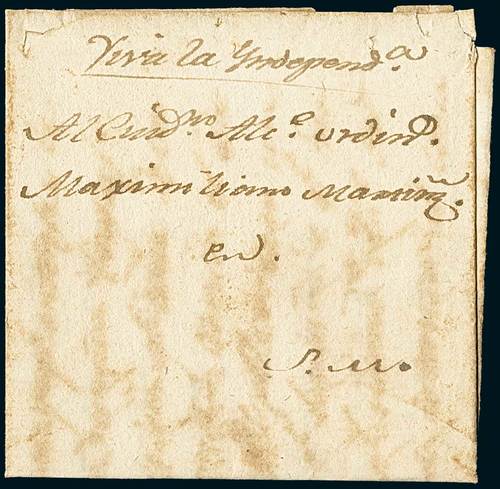 Viva la Yndepend.a
Al Ciud.no Alc.e ordin.o
Maximiliano Martinz.
en.
S. M.